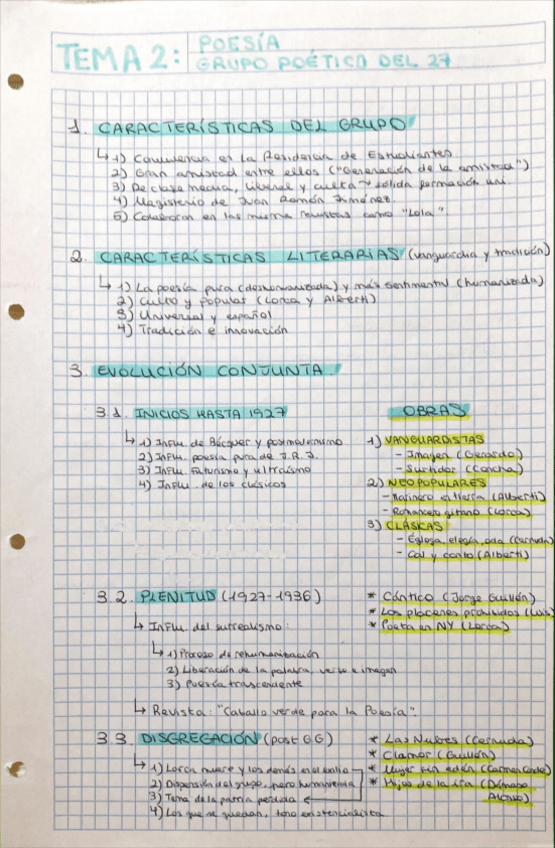 TEMA 2:
POESÍA
GRUPO POÉTICO DEL 27
1. CARACTERÍSTICAS DEL GRUPO
↳ 1) Convivencia en la Residencia de Estudiantes
2) Gran amistad entre ellos ("Generación de la amistad")
3) De clase media, liberal y culta → sólida formación uni.
4) Magisterio de Juan Ramón Jiménez.
5) Colaboran en las misma revistas como "Lola"
2. CARACTERÍSTICAS LITERARIAS (vanguardia y tradición)
↳ 1) La poesía pura (deshumanizada) y más sentimental (humanizada)
2) Culto y popular (Lorca y Alberti)
3) Universal y español
4) Tradición e innovación
3. EVOLUCIÓN CONJUNTA.
3.1. INICIOS HASTA 1927
↳ 1) Influ. de Bécquer y posmodernismo
2) Influ. poesía pura de J.R.J.
3) Influ. Futurismo y ultraísmo
4) Influ. de los clásicos
OBRAS
1) VANGUARDISTAS
- Imagen (Gerardo)
- Surtidor (Concha)
2) NEOPOPULARES
- Marinero en tierra (Alberti)
- Romancero gitano (Lorca)
3) CLÁSICAS
- Égloga, elegía, oda (Cernuda)
- Cal y canto (Alberti)
3.2. PLENITUD (1927-1936)
↳ Influ. del surrealismo:
↳ 1) Proceso de rehumanización
2) Liberación de la palabra, verso e imagen
3) Poesía trascendente
↳ Revista: "Caballo verde para la Poesía".
* Cántico (Jorge Guillén)
* Los placeres prohibidos (Luis)
* Poeta en NY (Lorca)
3.3. DISGREGACIÓN (post GG)
↳ 1) Lorca muere y los demás en el exilio
2) Dispersión del grupo, pero humanizada
3) Tema de la patria perdida
4) Los que se quedan, tono existencialista
* Las Nubes (Cernuda)
* Clamor (Guillén)
* Mujer sin edén (Carmen Conde)
* Hijos de la ira (Dámaso
Alonso)